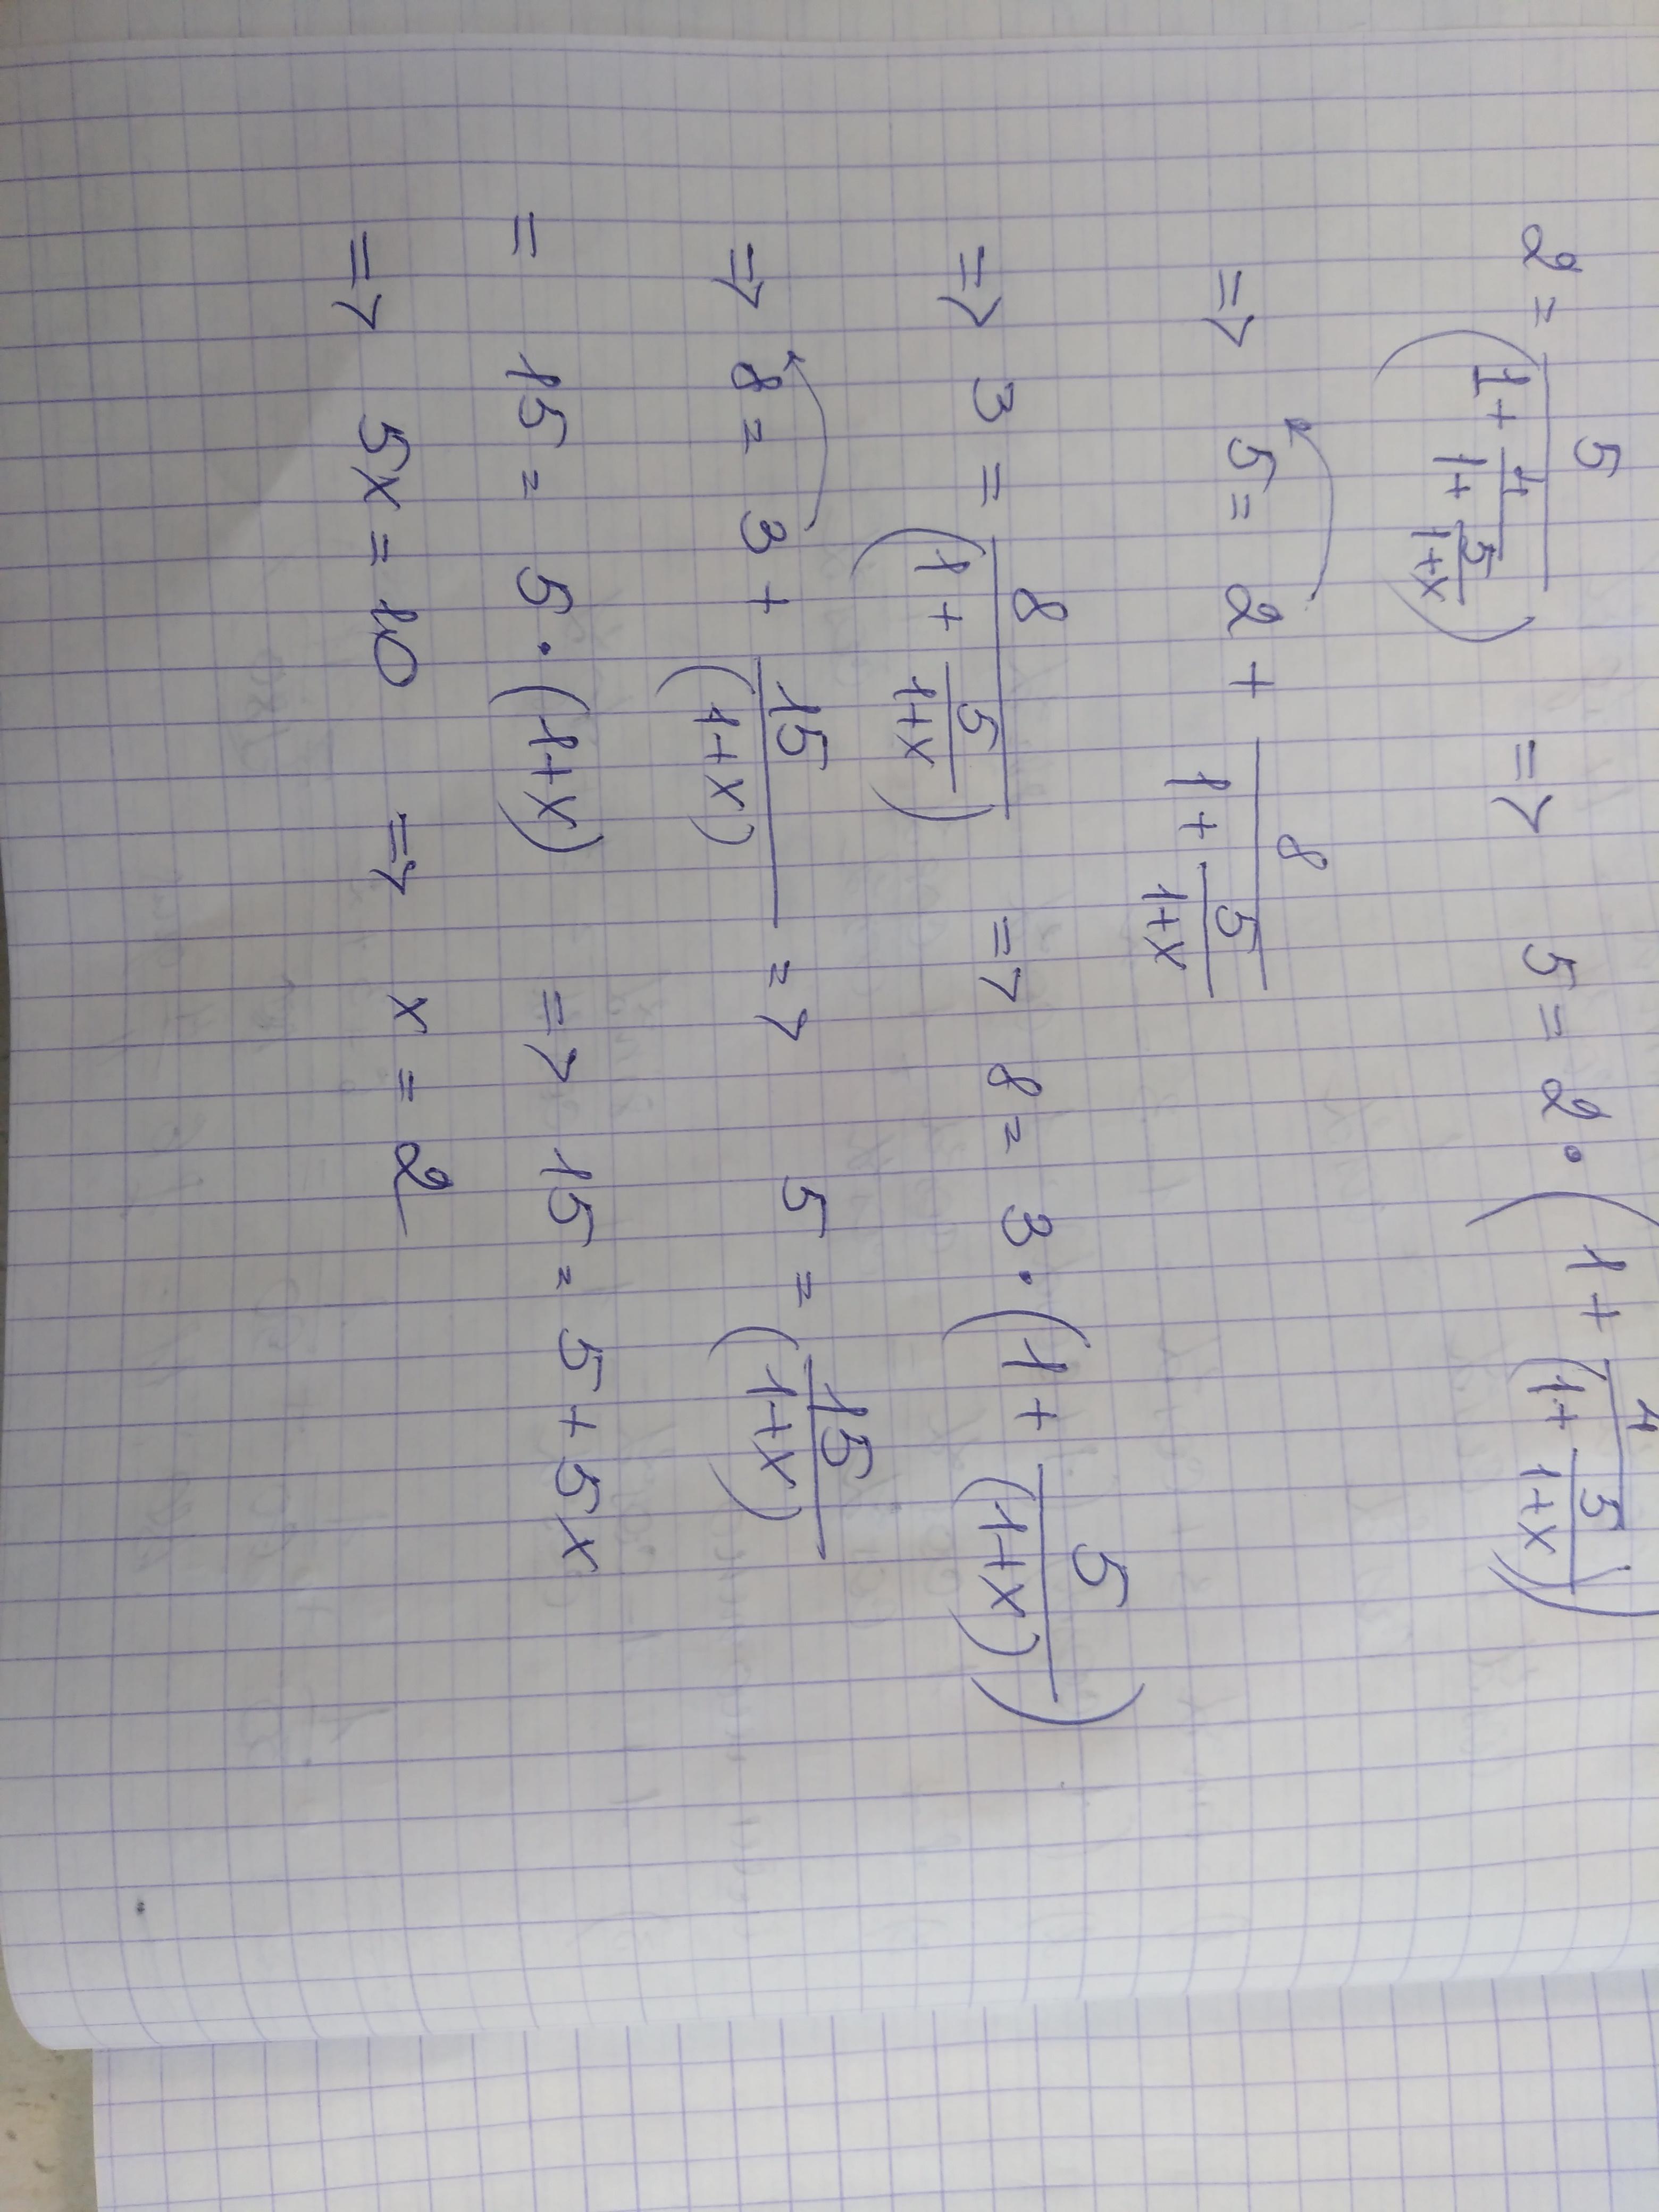 2 = 5/(1 + 4/(1 + 5/(1+x))) => 5 = 2 · (1 + 4/(1 + 5/(1+x)))
=> 5 = 2 + 8/(1 + 5/(1+x))
=> 3 = 8/(1 + 5/(1+x)) => 8 = 3 · (1 + 5/(1+x))
=> 8 = 3 + 15/(1+x) => 5 = 15/(1+x)
= 15 = 5 · (1+x) => 15 = 5 + 5x
=> 5x = 10 => x = 2